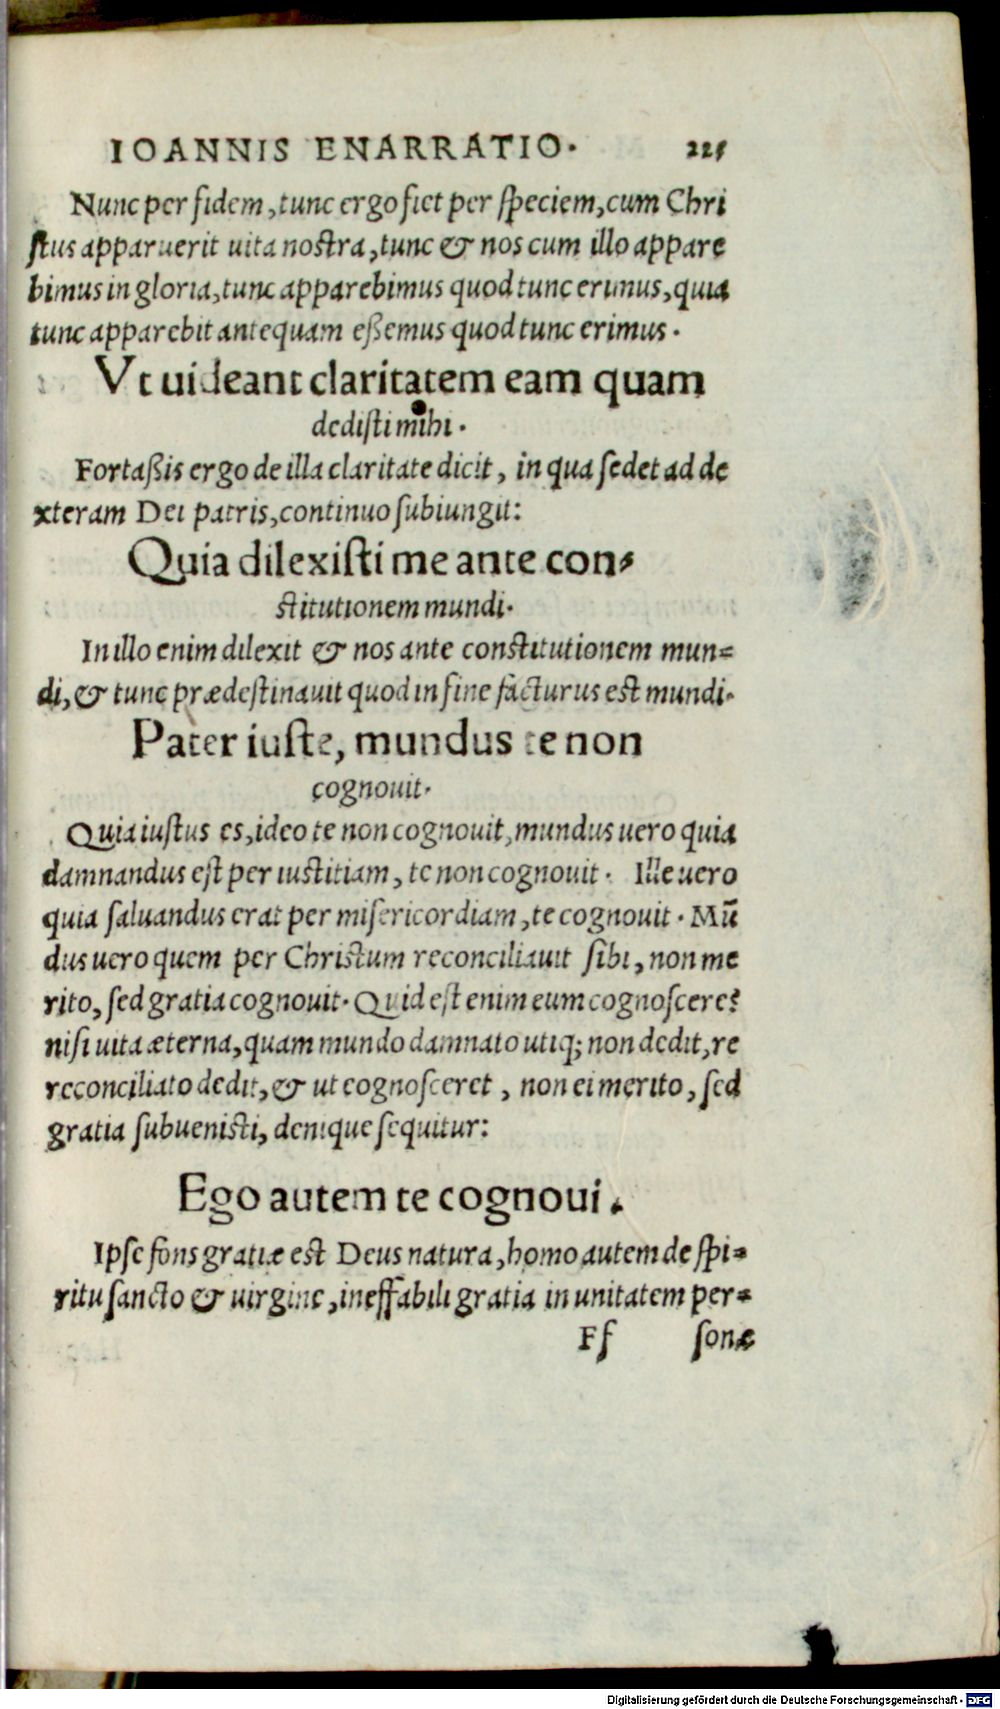 IOANNIS ENARRATIO. 225
Nunc per fidem, tunc ergo fiet per speciem, cum Chri
stus apparuerit uita nostra, tunc & nos cum illo appare
bimus in gloria, tunc apparebimus quod tunc erimus, quia
tunc apparebit antequam eßemus quod tunc erimus.
Vt uideant claritatem eam quam
dedisti mihi.
Fortaßis ergo de illa claritate dicit, in qua sedet ad de
xteram Dei patris, continuo subiungit:
Quia dilexisti me ante con-
stitutionem mundi.
In illo enim dilexit & nos ante constitutionem mun=
di, & tunc prædestinauit quod in fine facturus est mundi.
Pater iuste, mundus te non
cognouit.
Quia iustus es, ideo te non cognouit, mundus uero quia
damnandus est per iustitiam, te non cognouit. Ille uero
quia saluandus erat per misericordiam, te cognouit. Mū
dus uero quem per Christum reconciliauit sibi, non me
rito, sed gratia cognouit. Quid est enim eum cognoscere?
nisi uita æterna, quam mundo damnato utiq; non dedit, re
reconciliato dedit, & ut cognosceret, non ei merito, sed
gratia subuenisti, denique sequitur:
Ego autem te cognoui.
Ipse fons gratiæ est Deus natura, homo autem de spi=
ritu sancto & uirgine, ineffabili gratia in unitatem per=
Ff sonæ
Digitalisierung gefördert durch die Deutsche Forschungsgemeinschaft - DFG